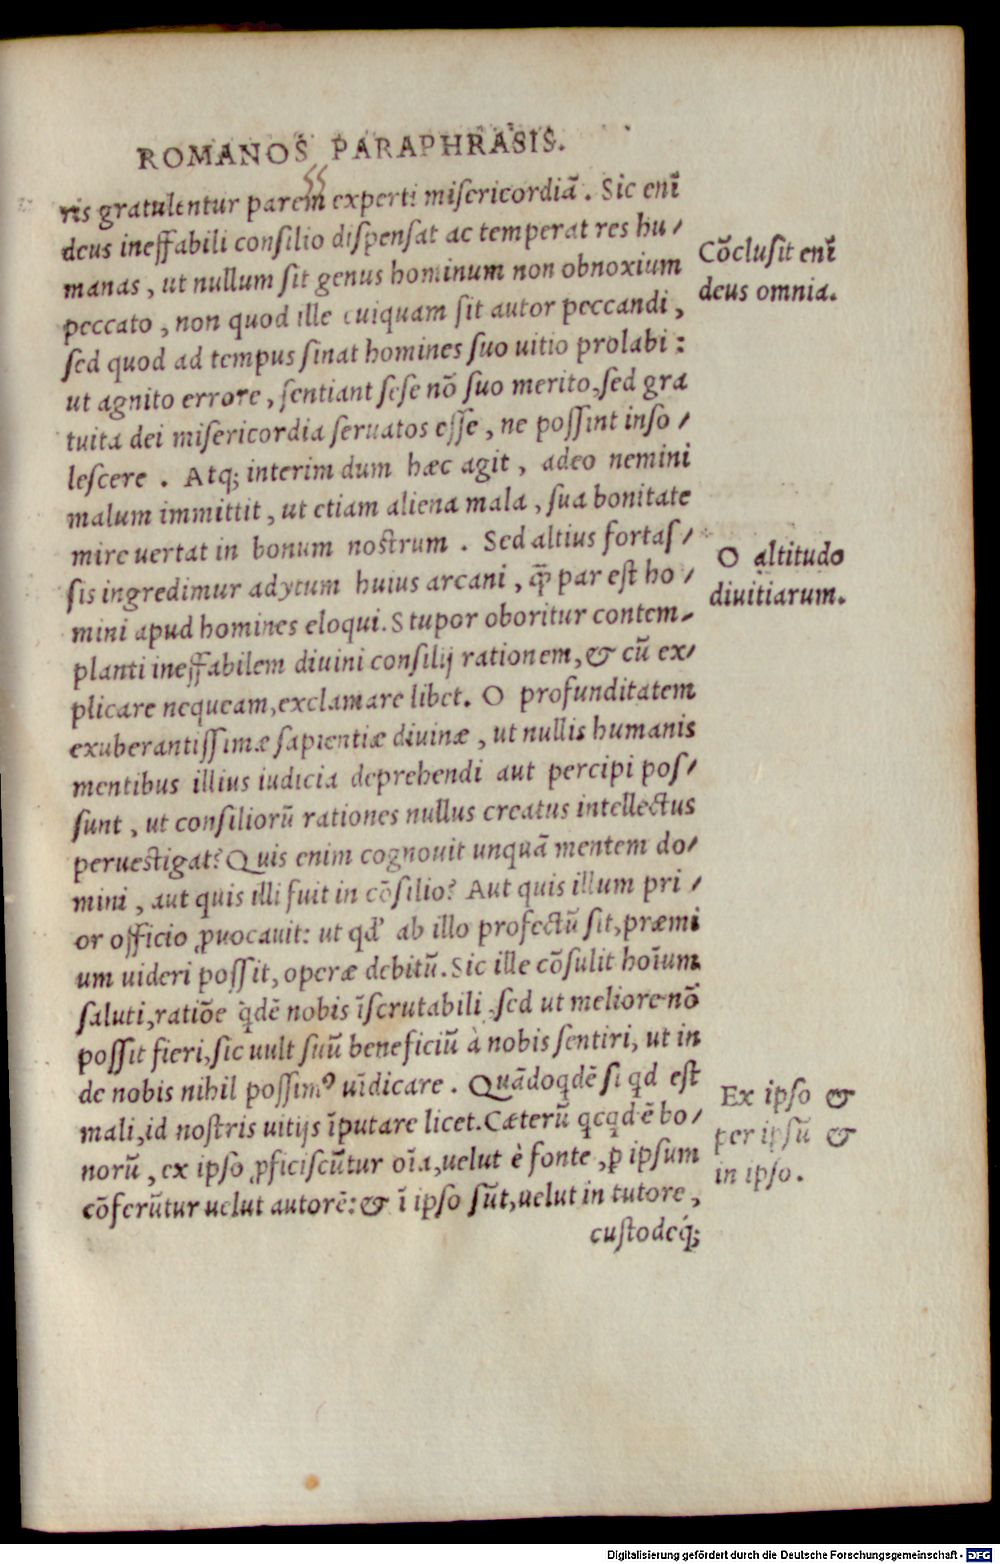 ROMANOS PARAPHRASIS.
ris gratulentur parem experti misericordiā. Sic enī
deus ineffabili consilio dispensat ac temperat res hu/
manas, ut nullum sit genus hominum non obnoxium
peccato, non quod ille cuiquam sit autor peccandi,
sed quod ad tempus sinat homines suo uitio prolabi:
ut agnito errore, sentiant sese nō suo merito, sed gra
tuita dei misericordia seruatos esse, ne possint inso/
lescere. Atq; interim dum hæc agit, adeo nemini
malum immittit, ut etiam aliena mala, sua bonitate
mire uertat in bonum nostrum. Sed altius fortas/
sis ingredimur adytum huius arcani, q̄ par est ho/
mini apud homines eloqui. Stupor oboritur contem/
planti ineffabilem diuini consilij rationem, & cū ex/
plicare nequeam, exclamare libet. O profunditatem
exuberantissimæ sapientiæ diuinæ, ut nullis humanis
mentibus illius iudicia deprehendi aut percipi pos/
sunt, ut consiliorū rationes nullus creatus intellectus
peruestigat? Quis enim cognouit unquā mentem do/
mini, aut quis illi fuit in cōsilio? Aut quis illum pri/
or officio ꝓuocauit: ut qd' ab illo profectū sit, præmi
um uideri possit, operæ debitū. Sic ille cōsulit hoīum
saluti, ratiōe q̇dē nobis īscrutabili, sed ut meliore nō
possit fieri, sic uult suū beneficiū à nobis sentiri, ut in
de nobis nihil possimꝰ uīdicare. Quādoqdē si qd est
mali, id nostris uitijs īputare licet. Cæterū qcqd ē bo/
norū, ex ipso ꝓficiscūtur oīa, uelut è fonte, ꝑ ipsum
cōferūtur uelut autorē: & ī ipso sūt, uelut in tutore,
custodeq́;
Cōclusit enī
deus omnia.
O altitudo
diuitiarum.
Ex ipso &
per ipsū &
in ipso.
Digitalisierung gefördert durch die Deutsche Forschungsgemeinschaft - DFG